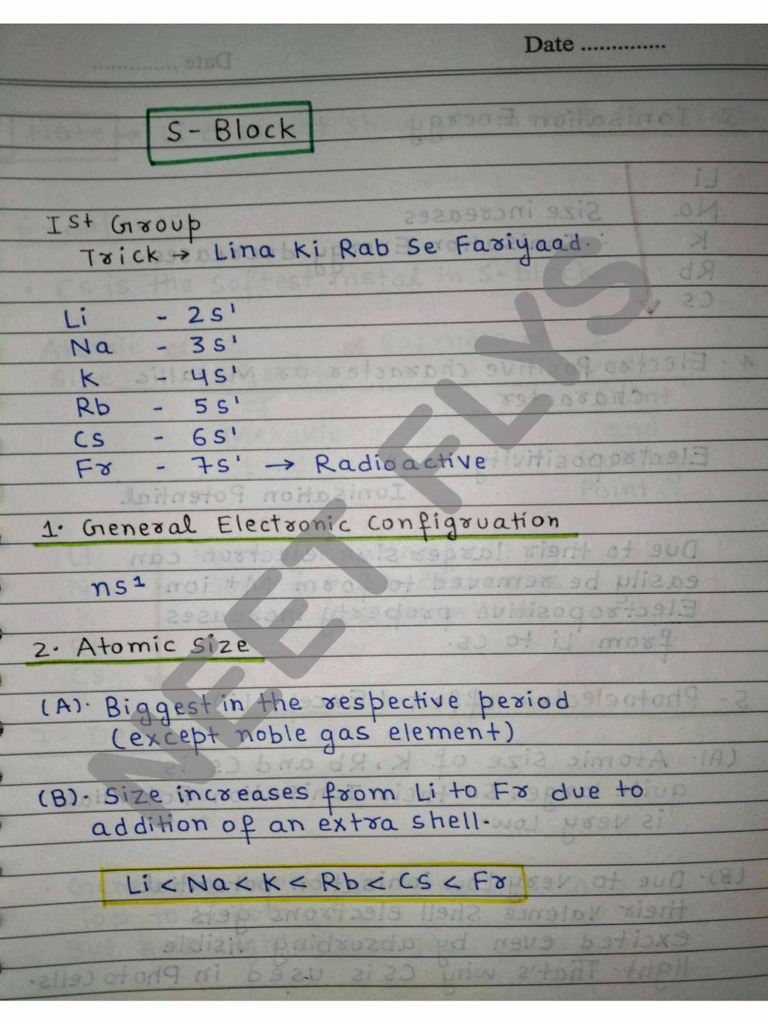 Date ..............
S - Block
Ist Group
Trick → Lina Ki Rab Se Fariyaad.
Li - 2s¹
Na - 3s¹
K - 4s¹
Rb - 5s¹
Cs - 6s¹
Fr - 7s¹ → Radioactive
1. General Electronic Configruation
ns¹
2. Atomic Size
(A). Biggest in the respective period
(except noble gas element)
(B). Size increases from Li to Fr due to
addition of an extra shell.
Li < Na < K < Rb < Cs < Fr
NEET FLYS